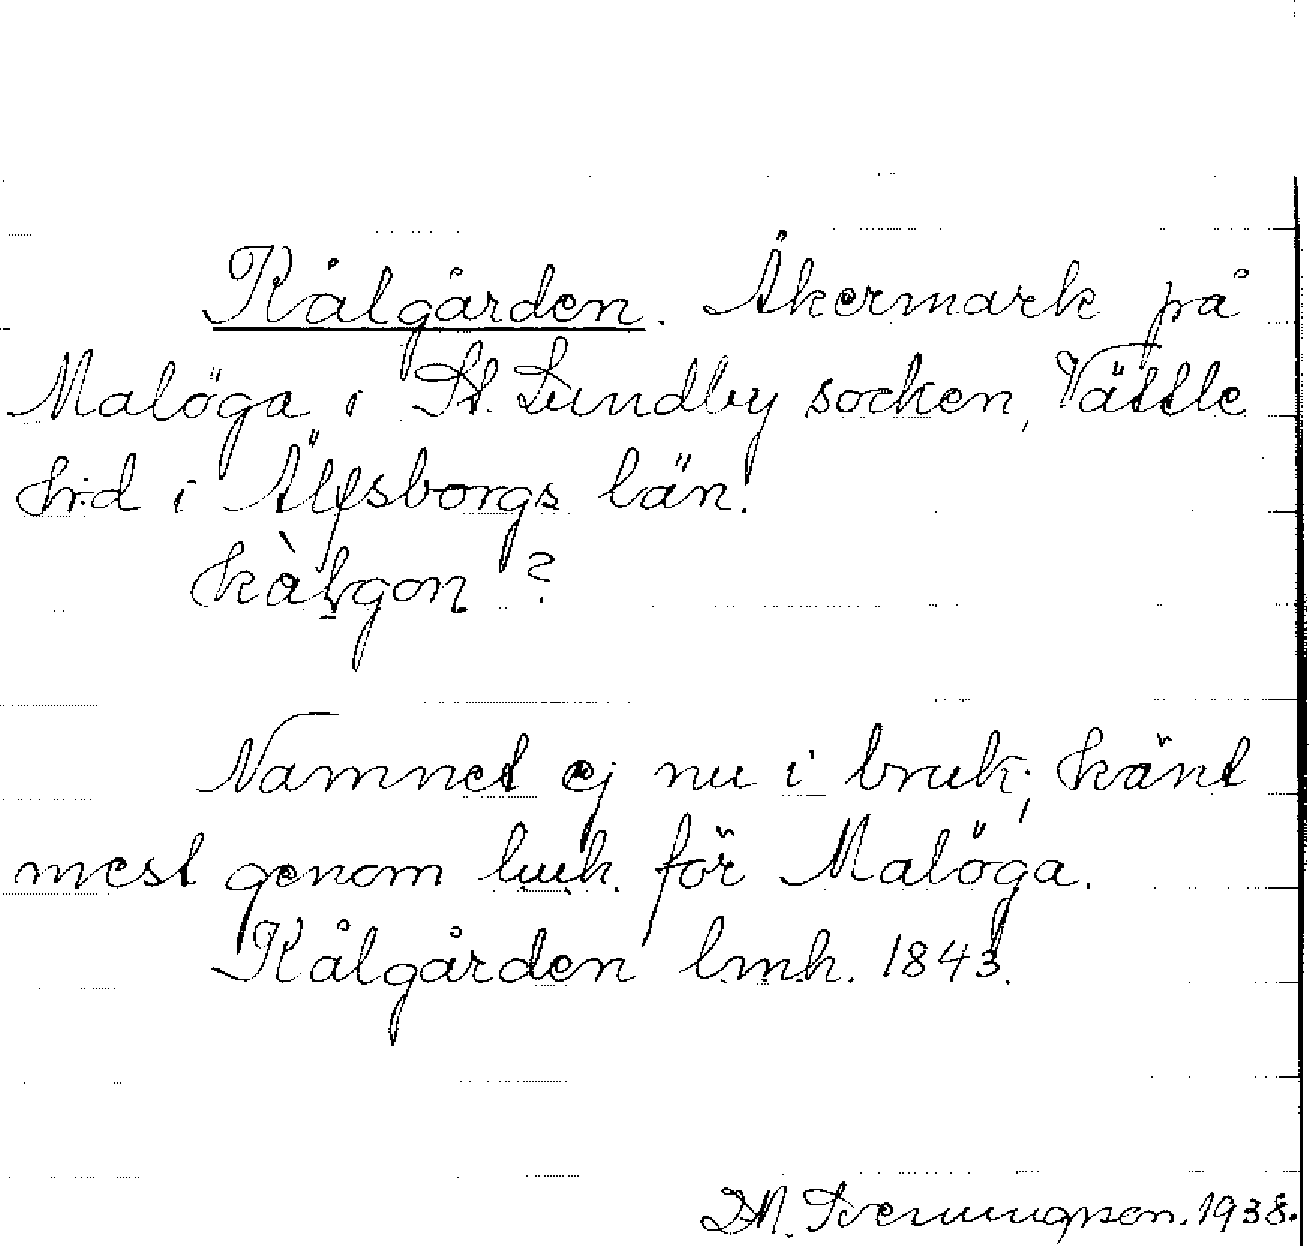 Kålgården. Åkermark på
Malöga i St. Lundby socken, Vättle
hrd i Älfsborgs län.
kàlgon ?
Namnet ej nu i bruk; känt
mest genom lmk. för Malöga.
Kålgården lmk. 1843.
D.M. Sverungson. 1938.